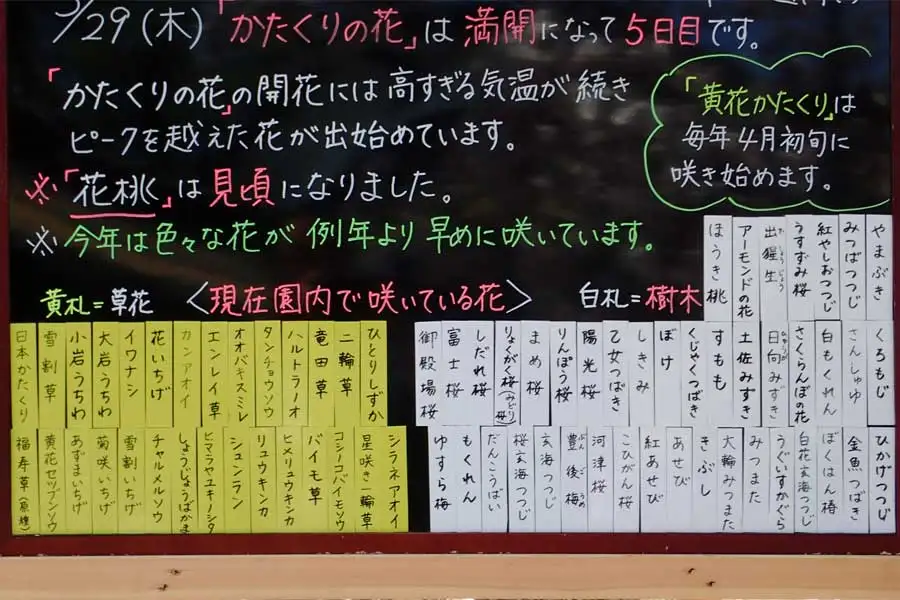 3/29(木)「かたくりの花」は満開になって5日目です。
「かたくりの花」の開花には高すぎる気温が続き
ピークを越えた花が出始めています。
※「花桃」は見頃になりました。
※今年は色々な花が例年より早めに咲いています。
「黄花かたくり」は
毎年4月初旬に
咲き始めます。
黄札=草花
〈現在園内で咲いている花〉
白札=樹木
やまぶき
みつばつつじ
紅やしおつつじ
うすずみ桜
出猩生
アーモンドの花
ほうき桃
くろもじ
さんしゅゆ
白もくれん
さくらんぼの花
日向みずき
土佐みずき
すもも
くじゃくつばき
ぼけ
しきみ
乙女つばき
陽光桜
りんぽう桜
まめ桜
りょくがく桜(みどり桜)
しだれ桜
富士桜
御殿場桜
ひかげつつじ
金魚つばき
ぼくはん椿
白花玄海つつじ
うぐいすかぐら
みつまた
大輪みつまた
きぶし
あせび
紅あせび
こひがん桜
河津桜
豊後梅
玄海つつじ
桜玄海つつじ
だんこうばい
もくれん
ゆすら梅
ひとりしずか
二輪草
竜田草
ハルトラノオ
タンチョウソウ
オオバキスミレ
エンレイ草
カンアオイ
花いちげ
イワナシ
大岩うちわ
小岩うちわ
雪割草
日本かたくり
シラネアオイ
星咲き一輪草
コシノコバイモソウ
バイモ草
ヒメリュウキンカ
リュウキンカ
シュンラン
ヒマラヤユキノシタ
しょうじょうばかま
チャルメルソウ
雪割いちげ
菊咲いちげ
あずまいちげ
黄花セツブンソウ
福寿草(原種)